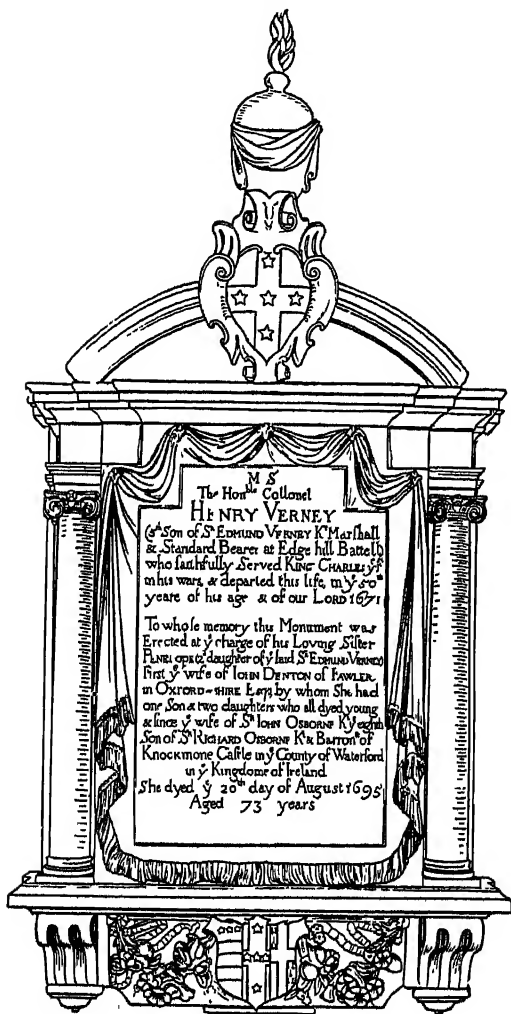 M S
The Hon^ble Collonel
HENRY VERNEY
(5^th Son of S^r EDMUND VERNEY K^t Marshall
& Standard Bearer at Edge hill Battell)
who faithfully Served KING CHARLES y^e f^t
in his wars, & departed this life, in y^e 50^th
yeare of his age & of our LORD 1671
To whose memory this Monument was
Erected at y^e charge of his Loving Sister
PENELOPE daughter of y^e said S^r EDMUND VERNEY)
First y^e wife of IOHN DENTON of FAWLER
in OXFORD-SHIRE Esq^r by whom She had
one Son & two daughters who all dyed young
& since y^e wife of S^r IOHN OSBORNE K^t y^e eighth
Son of S^r RICHARD OSBORNE K^t & Barron^t of
KNOCKMONE Castle in y^e County of Waterford
in y^e Kingdome of Ireland
She dyed y^e 20^th day of August 1695
Aged 73 years